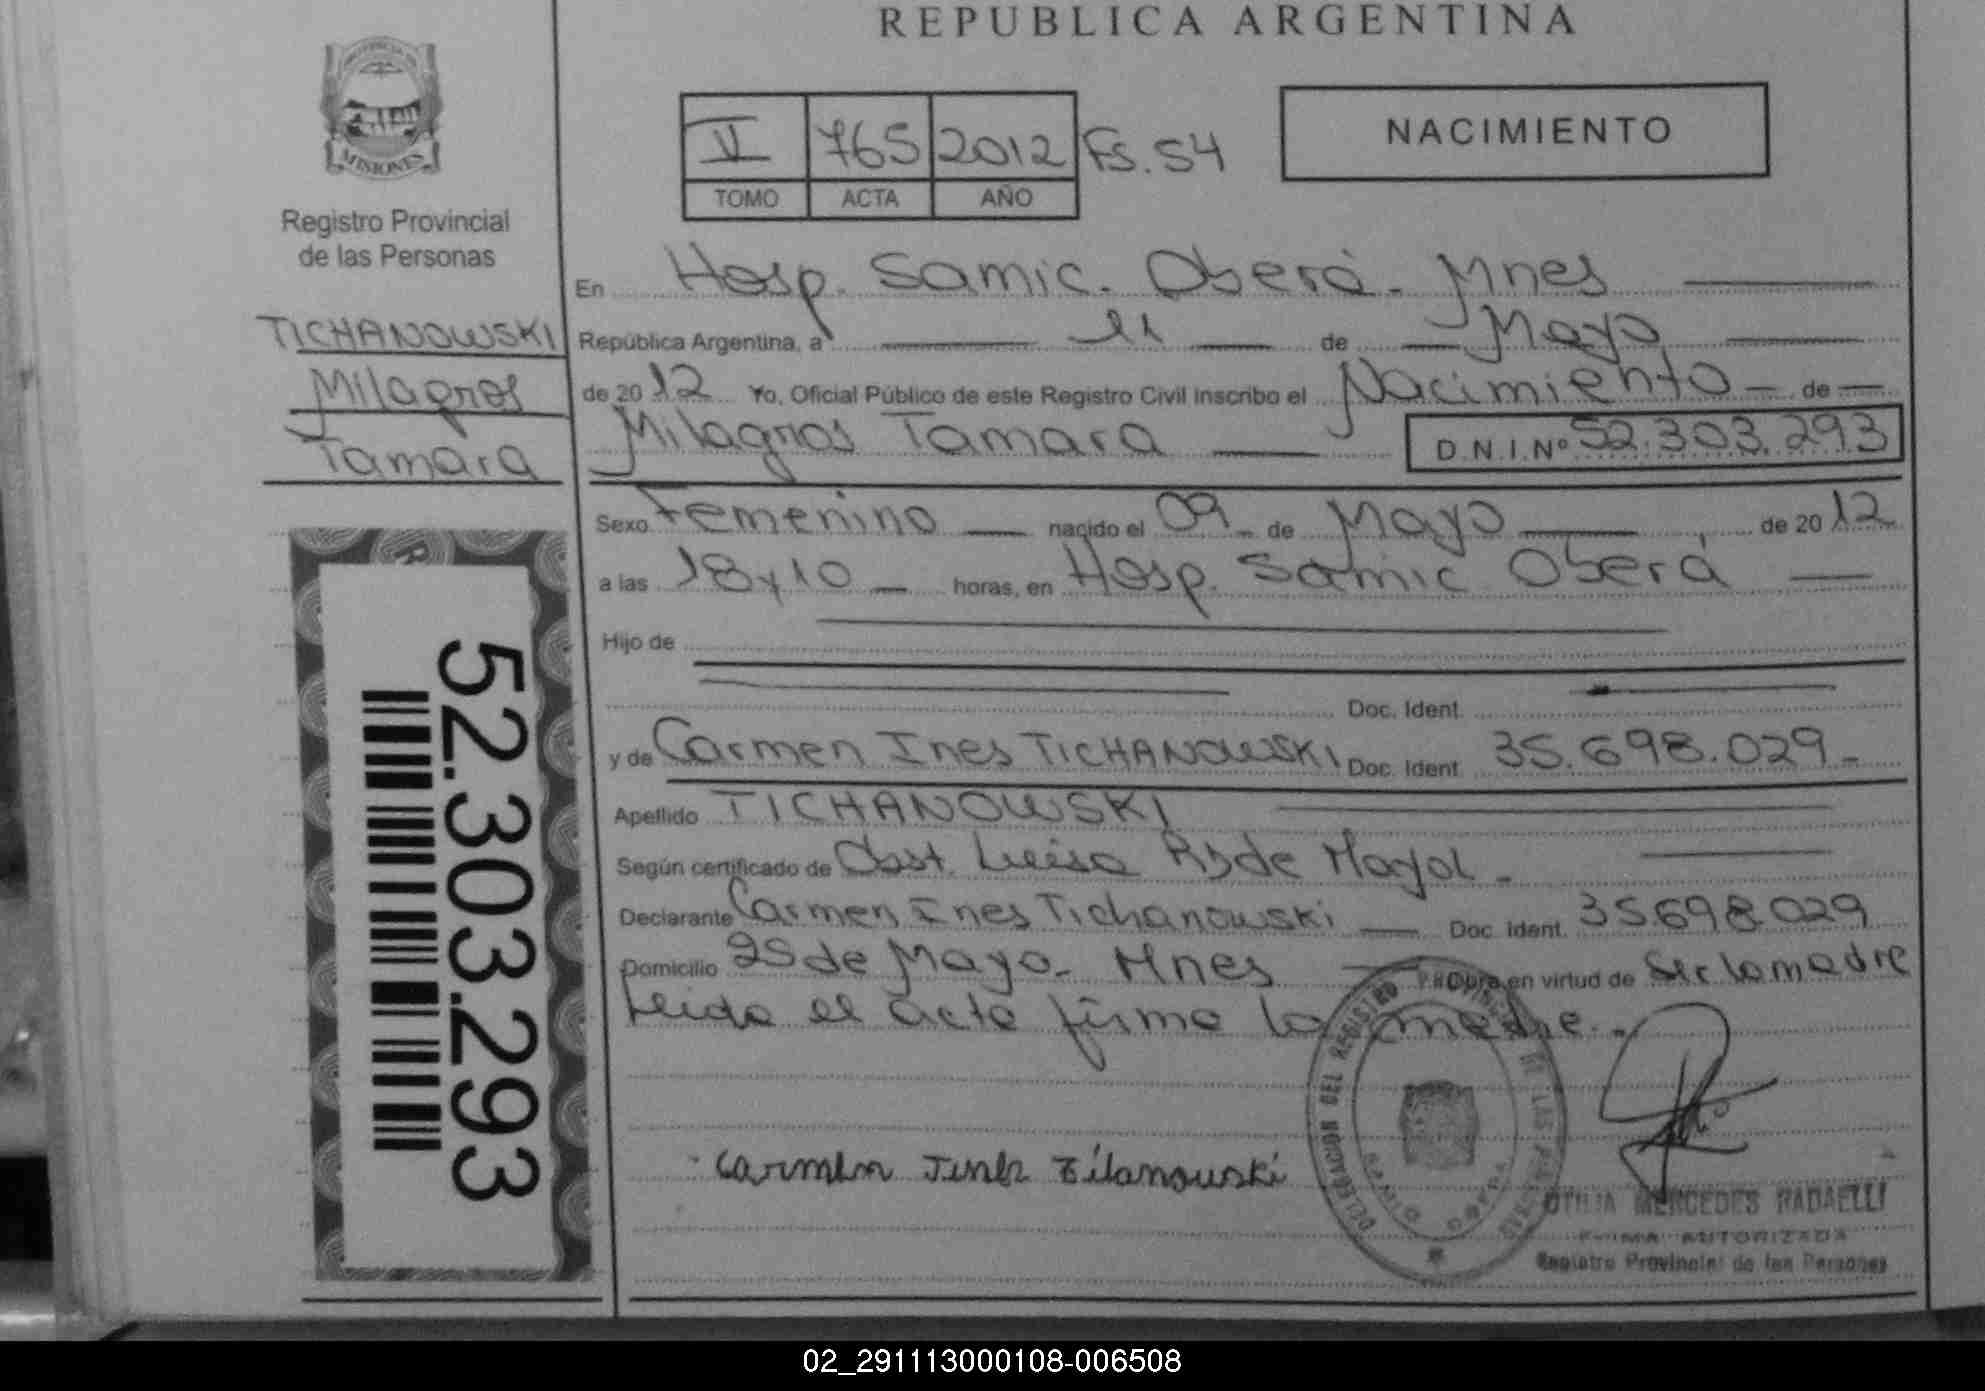 REPUBLICA ARGENTINA
PROVINCIA DE
MISIONES
Registro Provincial
de las Personas
V 765 2012 Fs. 54
TOMO ACTA AÑO
NACIMIENTO
TICHANOWSKI
Milagros
Tamara
52.303.293
En Hosp. Samic. Oberá. Mnes
República Argentina, a 11 de Mayo
de 2012 Yo, Oficial Público de este Registro Civil Inscribo el Nacimiento de
Milagros Tamara D.N.I.Nº 52.303.293
Sexo Femenino nacido el 09 de Mayo de 2012
a las 18 y 10 horas, en Hosp. Samic Oberá
Hijo de
Doc. Ident.
y de Carmen Ines TICHANOWSKI Doc. Ident. 35.698.029.-
Apellido TICHANOWSKI
Según certificado de Obst. Luisa R. de Mayol.-
Declarante Carmen Ines Tichanowski Doc. Ident. 35698029
Domicilio 25 de Mayo. Mnes Obra en virtud de Ser la madre
Leida el acta firma la madre.-
DELEGACION DEL REGISTRO PROVINCIAL DE LAS PERSONAS
Carmen Ines
OTILIA MERCEDES RADAELLI
FIRMA AUTORIZADA
Registro Provincial de las Personas
02_291113000108-006508